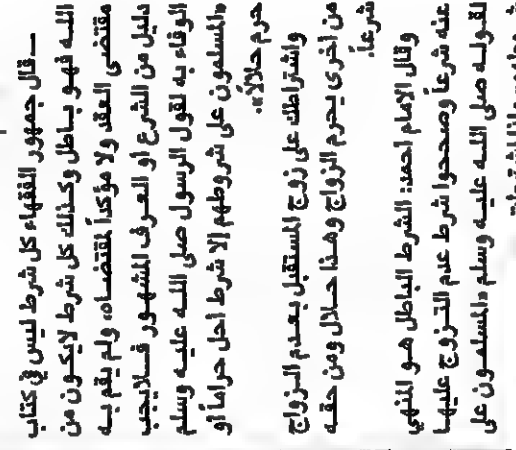 ـ قال جمهور الفقهاء كل شرط ليس في كتاب
الله فهو باطل وكذلك كل شرط لايكون من
مقتضى العقد ولا مؤكداً لمقتضاه، ولم يقم به
دليل من الشرع أو العرف المشهور فلايجب
الوفاء به لقول الرسول صلى الله عليه وسلم
«المسلمون على شروطهم إلا شرط أحل حراماً أو
حرم حلالاً».
واشتراطك على زوج المستقبل بعدم الزواج
من أخرى يحرم الزواج وهذا حلال ومن حقه
شرعاً.
وقال الامام احمد: الشرط الباطل هو المنهي
عنه شرعاً وصححوا شرط عدم التزوج عليها
لقوله صلى الله عليه وسلم «المسلمون على